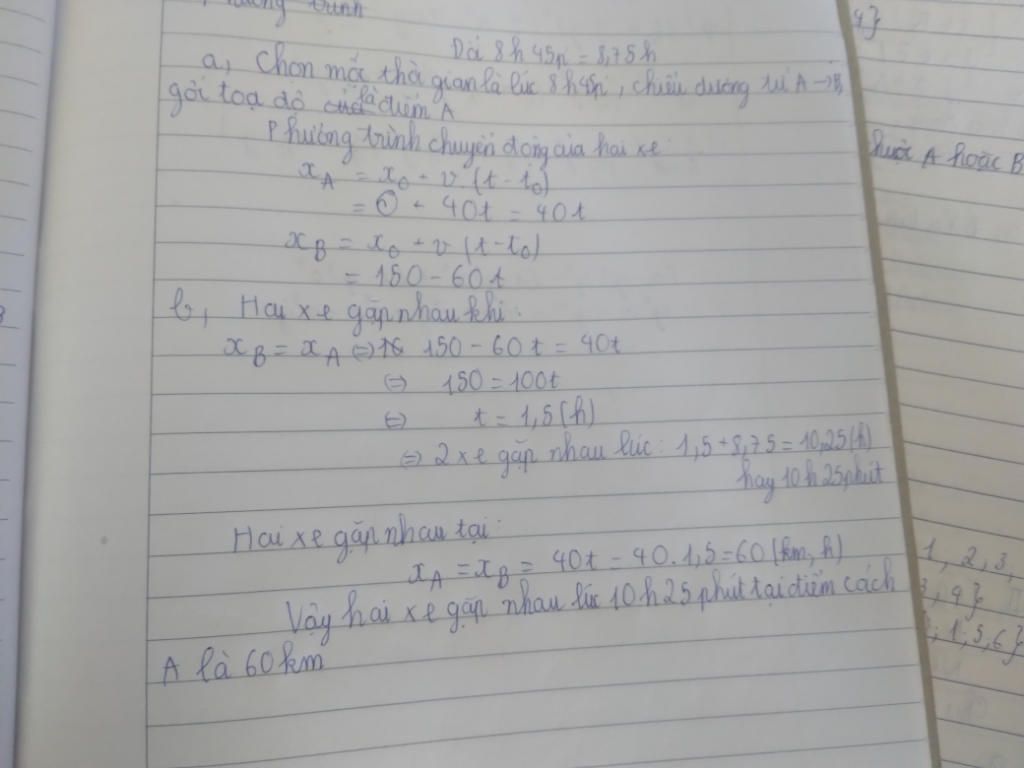 trình
Dổi 8h45p = 8,75h
a, Chọn mốc thời gian là lúc 8h45p, chiều dương từ A → B,
gốc toạ độ là điểm A
Phương trình chuyển động của hai xe:
x_A = x_0 + v.(t - t_0)
= 0 + 40t = 40t
x_B = x_0 + v (t - t_0)
= 150 - 60t
b, Hai xe gặp nhau khi:
x_B = x_A ⇔ 150 - 60t = 40t
⇔ 150 = 100t
⇔ t = 1,5 (h)
⇔ 2 xe gặp nhau lúc: 1,5 + 8,75 = 10,25 (h)
hay 10h25phút
Hai xe gặp nhau tại:
x_A = x_B = 40t = 40.1,5 = 60 (km, h)
Vậy hai xe gặp nhau lúc 10h25phút tại điểm cách
A là 60km
9}
thuộc A hoặc B
1, 2, 3,
3, 9}
1; 5, 6}